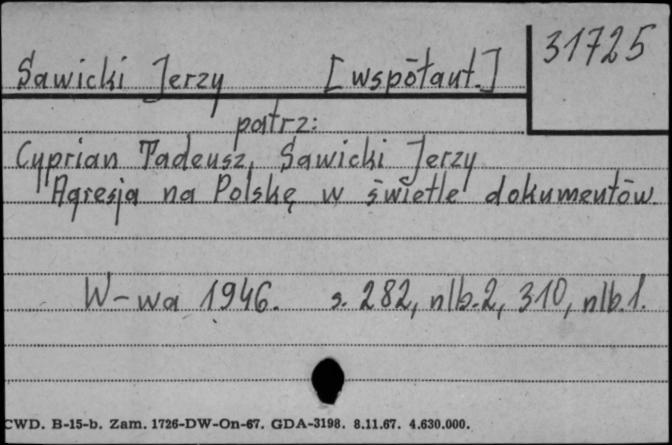 31725
Sawicki Jerzy [współaut.]
patrz:
Cyprian Tadeusz, Sawicki Jerzy
Agresja na Polskę w świetle dokumentów.
W-wa 1946. s. 282, nlb.2, 310, nlb.1.
CWD. B-15-b. Zam. 1726-DW-On-67. GDA-3198. 8.11.67. 4.630.000.